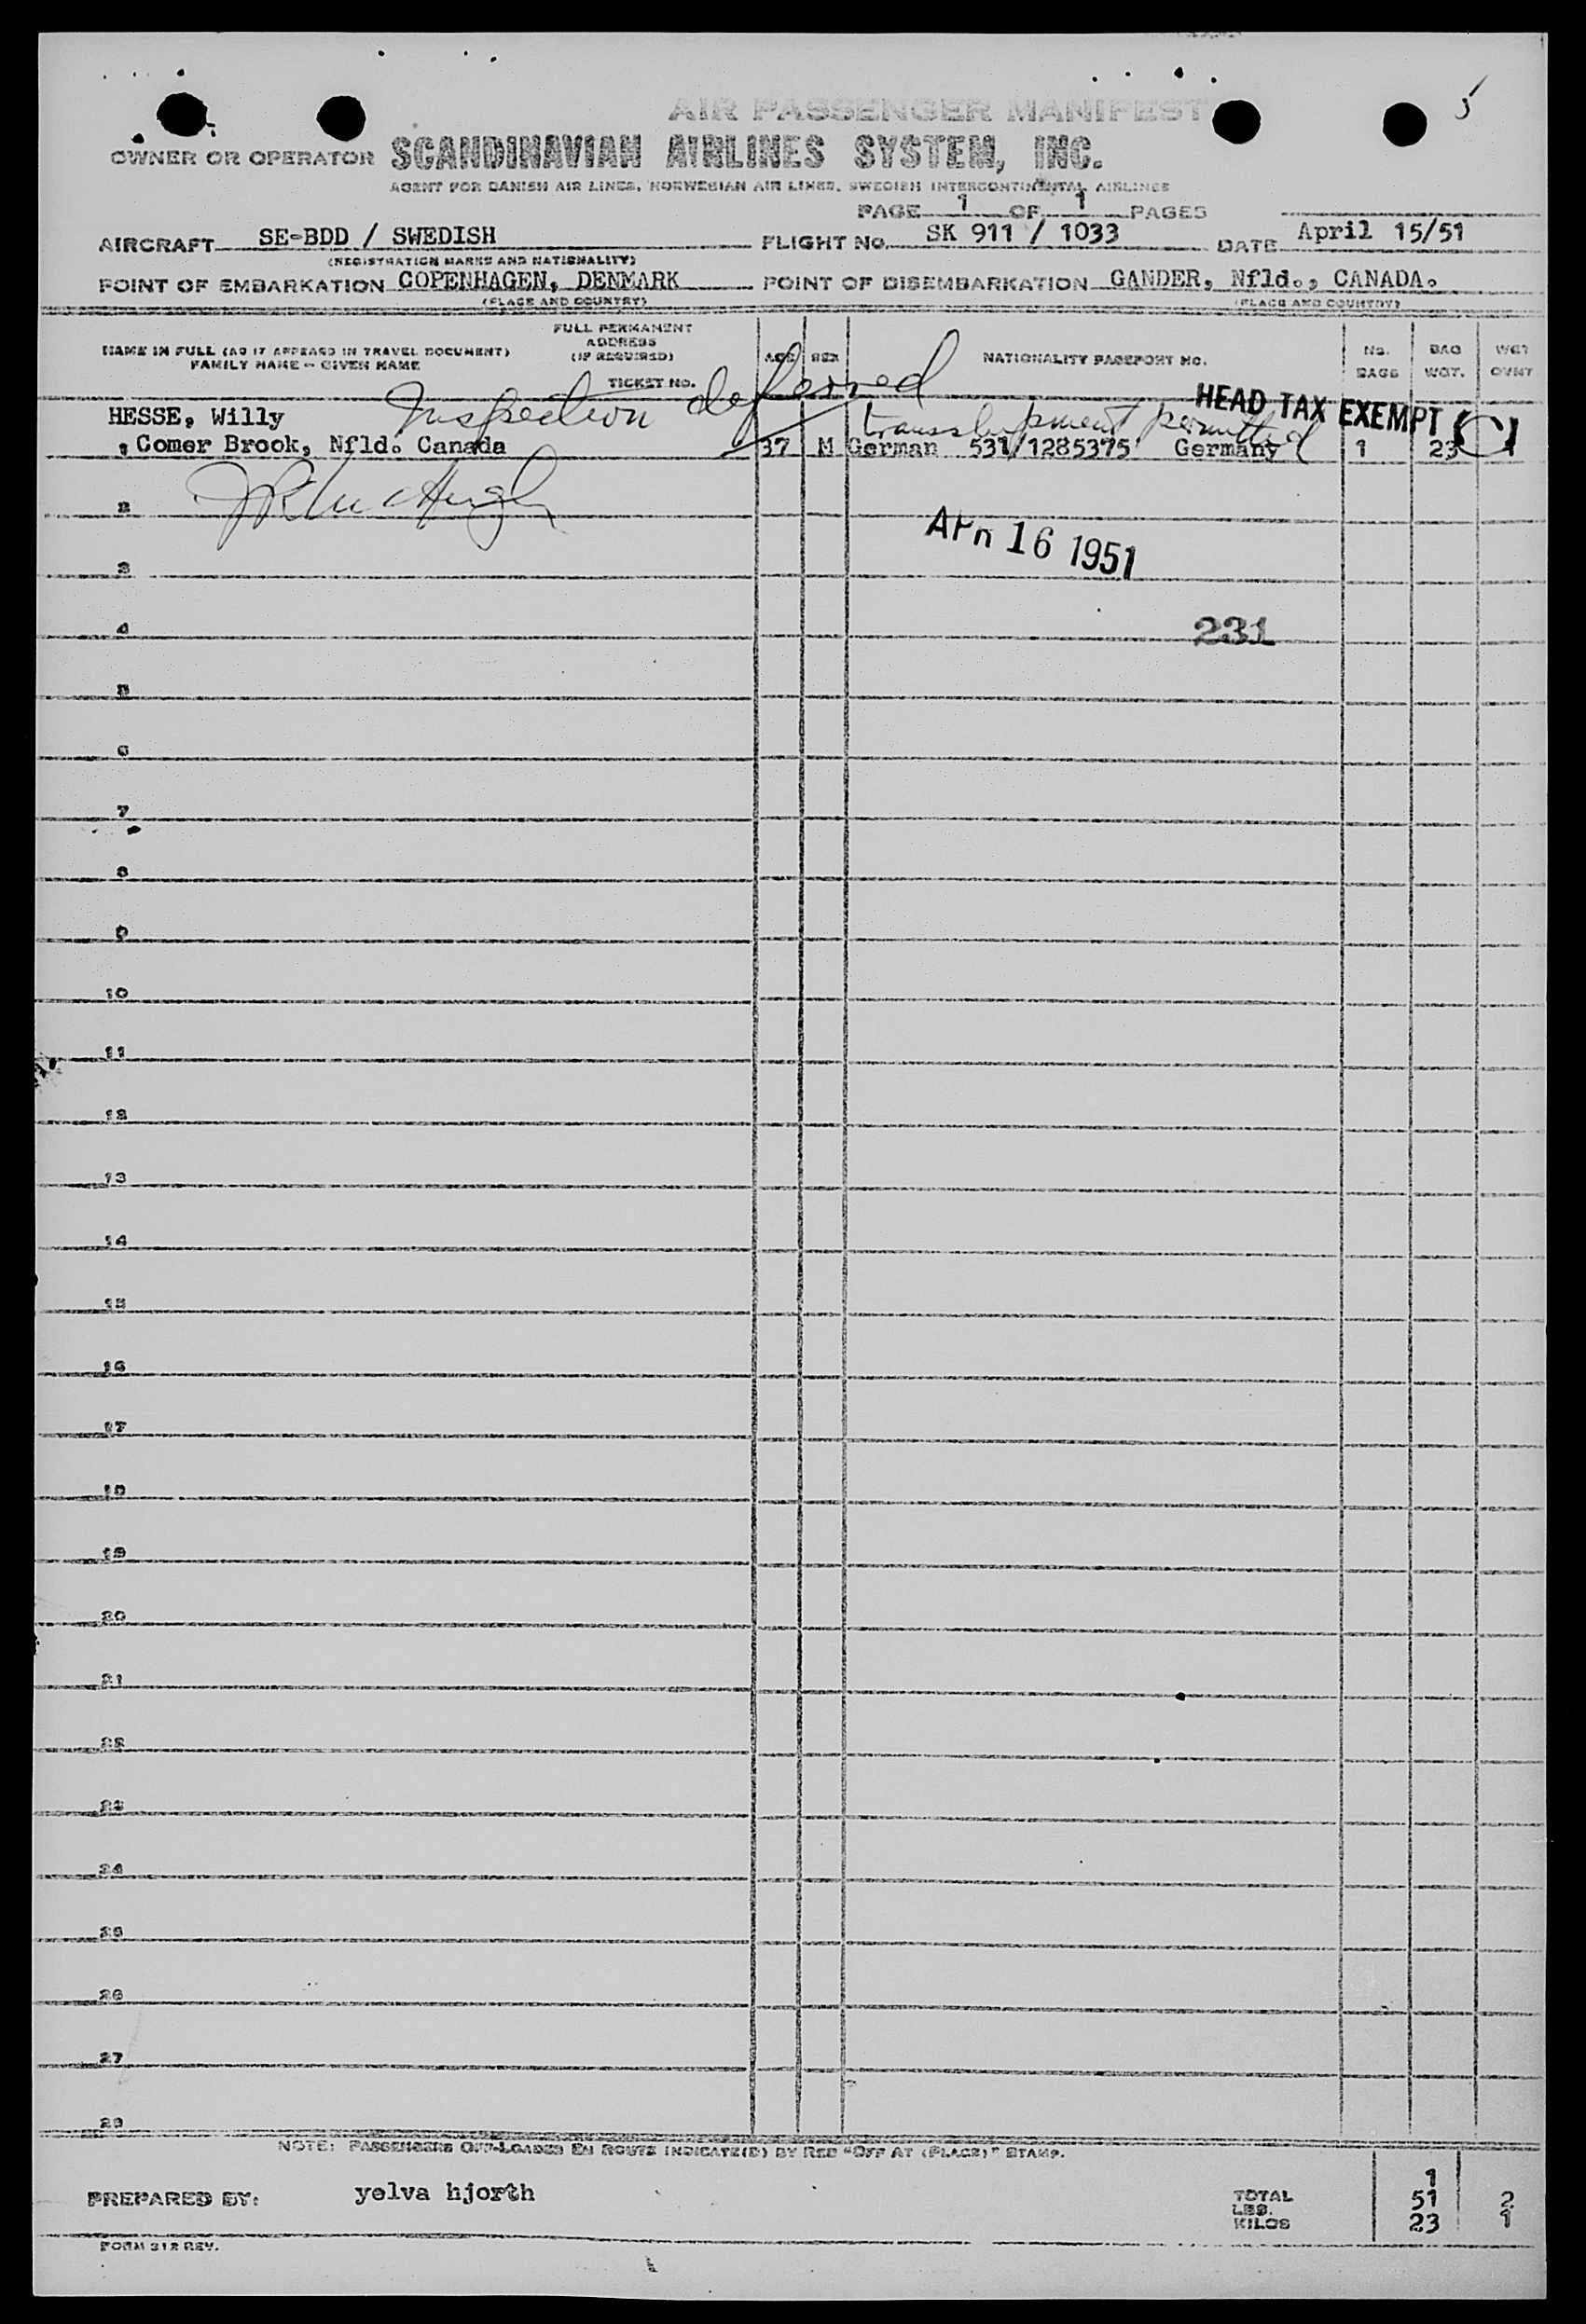 5
AIR PASSENGER MANIFEST
OWNER OR OPERATOR SCANDINAVIAN AIRLINES SYSTEM, INC.
AGENT FOR DANISH AIR LINES, NORWEGIAN AIR LINES, SWEDISH INTERCONTINENTAL AIRLINES
PAGE 1 OF 1 PAGES
AIRCRAFT SE-BDD / SWEDISH FLIGHT No. SK 911 / 1033 DATE April 15/51
(REGISTRATION MARKS AND NATIONALITY)
POINT OF EMBARKATION COPENHAGEN, DENMARK POINT OF DISEMBARKATION GANDER, Nfld., CANADA.
(PLACE AND COUNTRY) (PLACE AND COUNTRY)
NAME IN FULL (AS IT APPEARS IN TRAVEL DOCUMENT) FULL PERMANENT ADDRESS (IF REQUIRED) AGE SEX NATIONALITY PASSPORT No. No. BAGS BAG WGT. WGT OVWT
FAMILY NAME - GIVEN NAME
TICKET No.
Inspection deferred
HESSE, Willy transshipment permitted HEAD TAX EXEMPT
, Comer Brook, Nfld. Canada 37 M German 531/1285375 Germany 1 23 1
J R McHugh
2
APR 16 1951
3
4 231
5
6
7
8
9
10
11
12
13
14
15
16
17
18
19
20
21
22
23
24
25
26
27
28
NOTE: PASSENGERS OFF-LOADED EN ROUTE INDICATE(D) BY RED "OFF AT (PLACE)" STAMP.
PREPARED BY: yelva hjorth
TOTAL 1
LBS. 51 2
KILOS 23 1
FORM 312 REV.